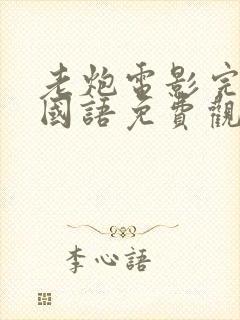 老炮電影完
國語免費觀
李心語